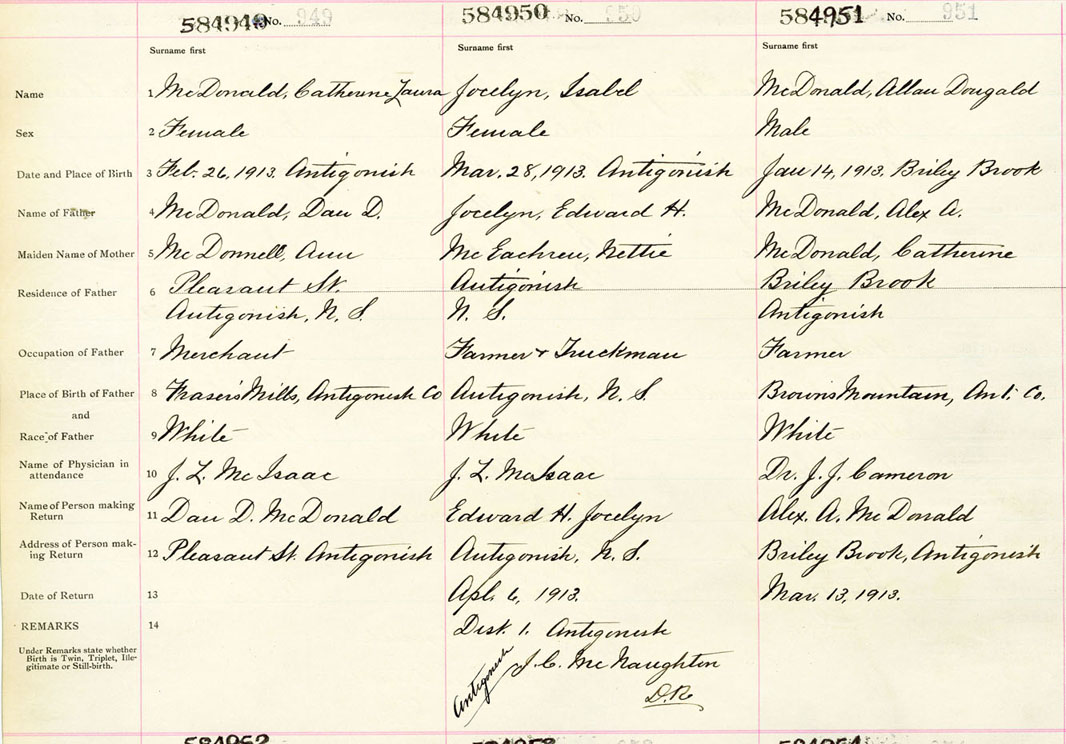 584949 No. 949 584950 No. 950 584951 No. 951
Surname first Surname first Surname first
Name 1 McDonald, Catherine Laura Jocelyn, Isabel McDonald, Allan Dougald
Sex 2 Female Female Male
Date and Place of Birth 3 Feb. 26, 1913. Antigonish Mar. 28, 1913. Antigonish Jan 14, 1913. Briley Brook
Name of Father 4 McDonald, Dan D. Jocelyn, Edward H. McDonald, Alex A.
Maiden Name of Mother 5 McDonnell, Ann McEachren, Nettie McDonald, Catherine
Residence of Father 6 Pleasant St. Antigonish Briley Brook
Antigonish, N. S. N. S. Antigonish
Occupation of Father 7 Merchant Farmer & Truckman Farmer
Place of Birth of Father 8 Frasers Mills, Antigonish Co Antigonish, N. S. Browns Mountain, Ant. Co.
and
Race of Father 9 White White White
Name of Physician in
attendance 10 J. L. McIsaac J. L. McIsaac Dr. J. J. Cameron
Name of Person making
Return 11 Dan D. McDonald Edward H. Jocelyn Alex. A. McDonald
Address of Person mak-
ing Return 12 Pleasant St. Antigonish Antigonish, N. S. Briley Brook, Antigonish
Date of Return 13 Apl. 6, 1913. Mar. 13, 1913.
REMARKS 14 Dist. 1. Antigonish
Under Remarks state whether
Birth is Twin, Triplet, Ille-
gitimate or Still-birth.
Antigonish J. C. McNaughton
D.R.